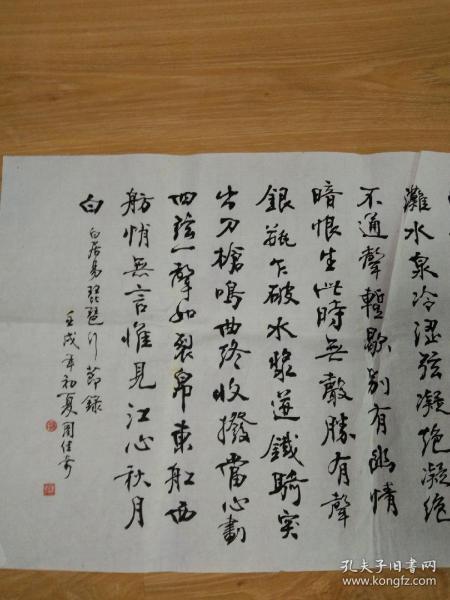 灘水泉冷澀弦凝絶凝絶
不通聲暫歇別有幽情
暗恨生此時無聲勝有聲
銀瓶乍破水漿迸鐵騎突
出刀槍鳴曲終收撥當心劃
四弦一聲如裂帛東船西
舫悄無言惟見江心秋月
白
白居易琵琶行節錄
壬戌年初夏周佳
孔夫子旧书网
www.kongfz.com